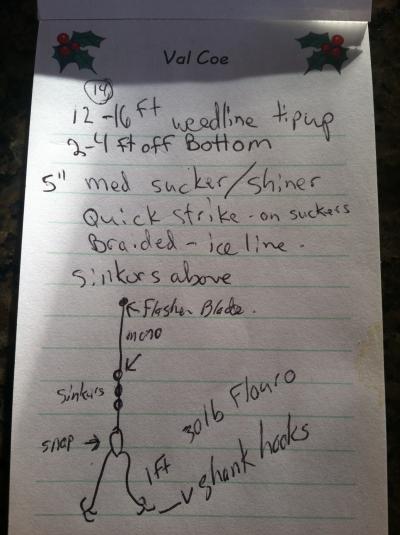 Val Coe
14
12-16 ft weedline tipup
2-4 ft off Bottom
5" med sucker/shiner
Quick strike - on suckers
Braided - ice line.
sinkurs above
Flasher Blade.
mono
sinkurs
30lb Flouro
snap
1ft
shank hooks